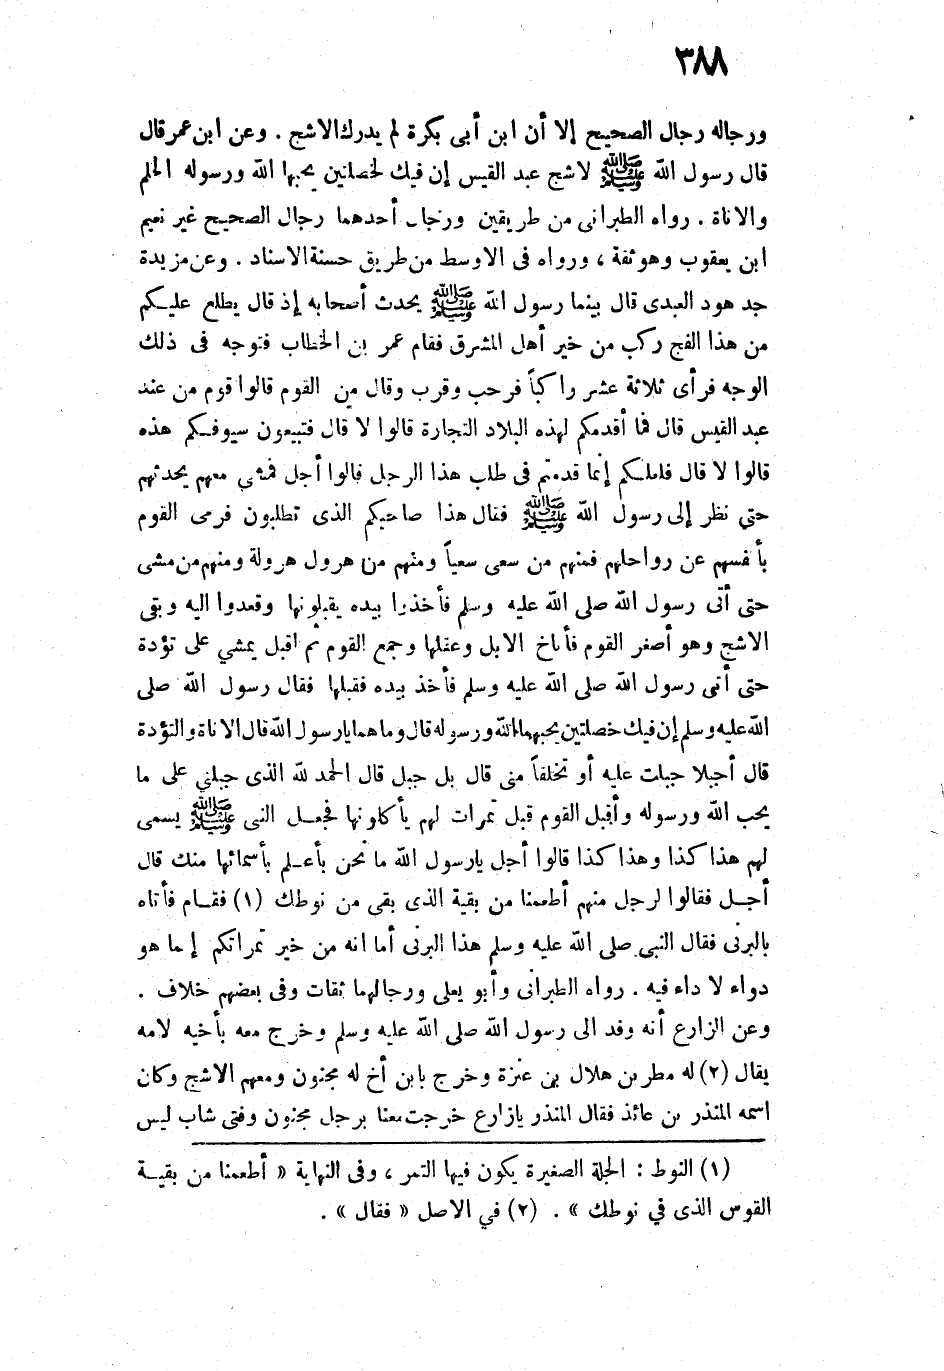 ٣٨٨
ورجاله رجال الصحيح إلا أن ابن أبى بكرة لم يدرك الاشج . وعن ابن عمر قال
قال رسول الله ﷺ لاشج عبد القيس إن فيك لخصلتين يحبها الله ورسوله الحلم
والاناة . رواه الطبرانى من طريقين ورجال أحدهما رجال الصحيح غير نعيم
ابن يعقوب وهو ثقة ، ورواه فى الاوسط من طريق حسنة الاسناد . وعن مزيدة
جد هود العبدى قال بينما رسول الله ﷺ يحدث أصحابه إذ قال يطلع عليكم
من هذا الفج ركب من خير أهل المشرق فقام عمر بن الخطاب فتوجه فى ذلك
الوجه فرأى ثلاثة عشر راكباً فرحب وقرب وقال من القوم قالوا قوم من عند
عبد القيس قال فما أقدمكم لهذه البلاد التجارة قالوا لا قال فتبيعون سيوفكم هذه
قالوا لا قال فلعلكم إنما قدمتم فى طلب هذا الرجل قالوا أجل فمشى معهم يحدثهم
حتى نظر إلى رسول الله ﷺ فقال هذا صاحبكم الذى تطلبون فرمى القوم
بأنفسهم عن رواحلهم فمنهم من سعى سعياً ومنهم من هرول هرولة ومنهم من مشى
حتى أتى رسول الله صلى الله عليه وسلم فأخذوا بيده يقبلونها وقعدوا اليه وبقى
الاشج وهو أصغر القوم فأناخ الابل وعقلها وجمع القوم ثم اقبل يمشي على تؤدة
حتى أتى رسول الله صلى الله عليه وسلم فأخذ بيده فقبلها فقال رسول الله صلى
الله عليه وسلم إن فيك خصلتين يحبهما الله ورسوله قال وما هما يارسول الله قال الاناة والتؤدة
قال أجبلا جبلت عليه أو تخلقاً منى قال بل جبل قال الحمد لله الذى جبلني على ما
يحب الله ورسوله وأقبل القوم قبل تمرات لهم يأكلونها فجعل النبى ﷺ يسمى
لهم هذا كذا وهذا كذا قالوا أجل يارسول الله ما نحن بأعلم بأسمائها منك قال
أجل فقالوا لرجل منهم أطعمنا من بقية الذى بقى من نوطك (١) فقام فأتاه
بالبرنى فقال النبى صلى الله عليه وسلم هذا البرنى أما انه من خير تمراتكم إنما هو
دواء لا داء فيه . رواه الطبرانى وأبو يعلى ورجالهما ثقات وفى بعضهم خلاف .
وعن الزارع أنه وفد الى رسول الله صلى الله عليه وسلم وخرج معه بأخيه لامه
يقال (٢) له مطر بن هلال بن عنزة وخرج بابن أخ له مجنون ومعهم الاشج وكان
اسمه المنذر بن عائذ فقال المنذر يازارع خرجت معنا برجل مجنون وفتى شاب ليس
(١) النوط : الجلة الصغيرة يكون فيها التمر ، وفى النهاية « أطعمنا من بقية
القوس الذى في نوطك » . (٢) في الاصل « فقال » .